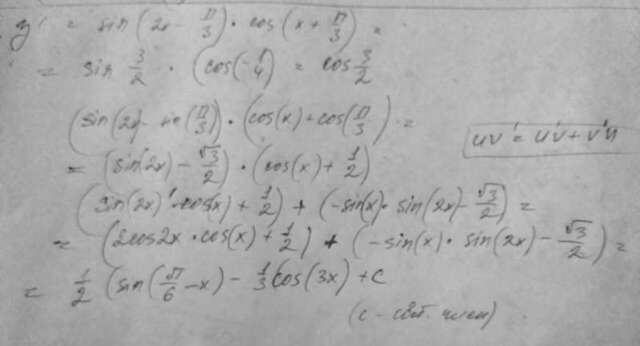 y' = sin(2x - π/3) · cos(x + π/3) =
= sin 3/2 · (cos(-1/4) = cos 3/2
(sin(2x) - sin(π/3)) · (cos(x) + cos(π/3) =
= (sin(2x) - √3/2) · (cos(x) + 1/2)
uv' = u'v + v'u
(sin(2x)' · cos(x) + 1/2) + (-sin(x) · sin(2x) - √3/2) =
= (2cos2x · cos(x) + 1/2) + (-sin(x) · sin(2x) - √3/2) =
= 1/2 (sin(π/6 - x) - 1/3 cos(3x) + c
(c - член)